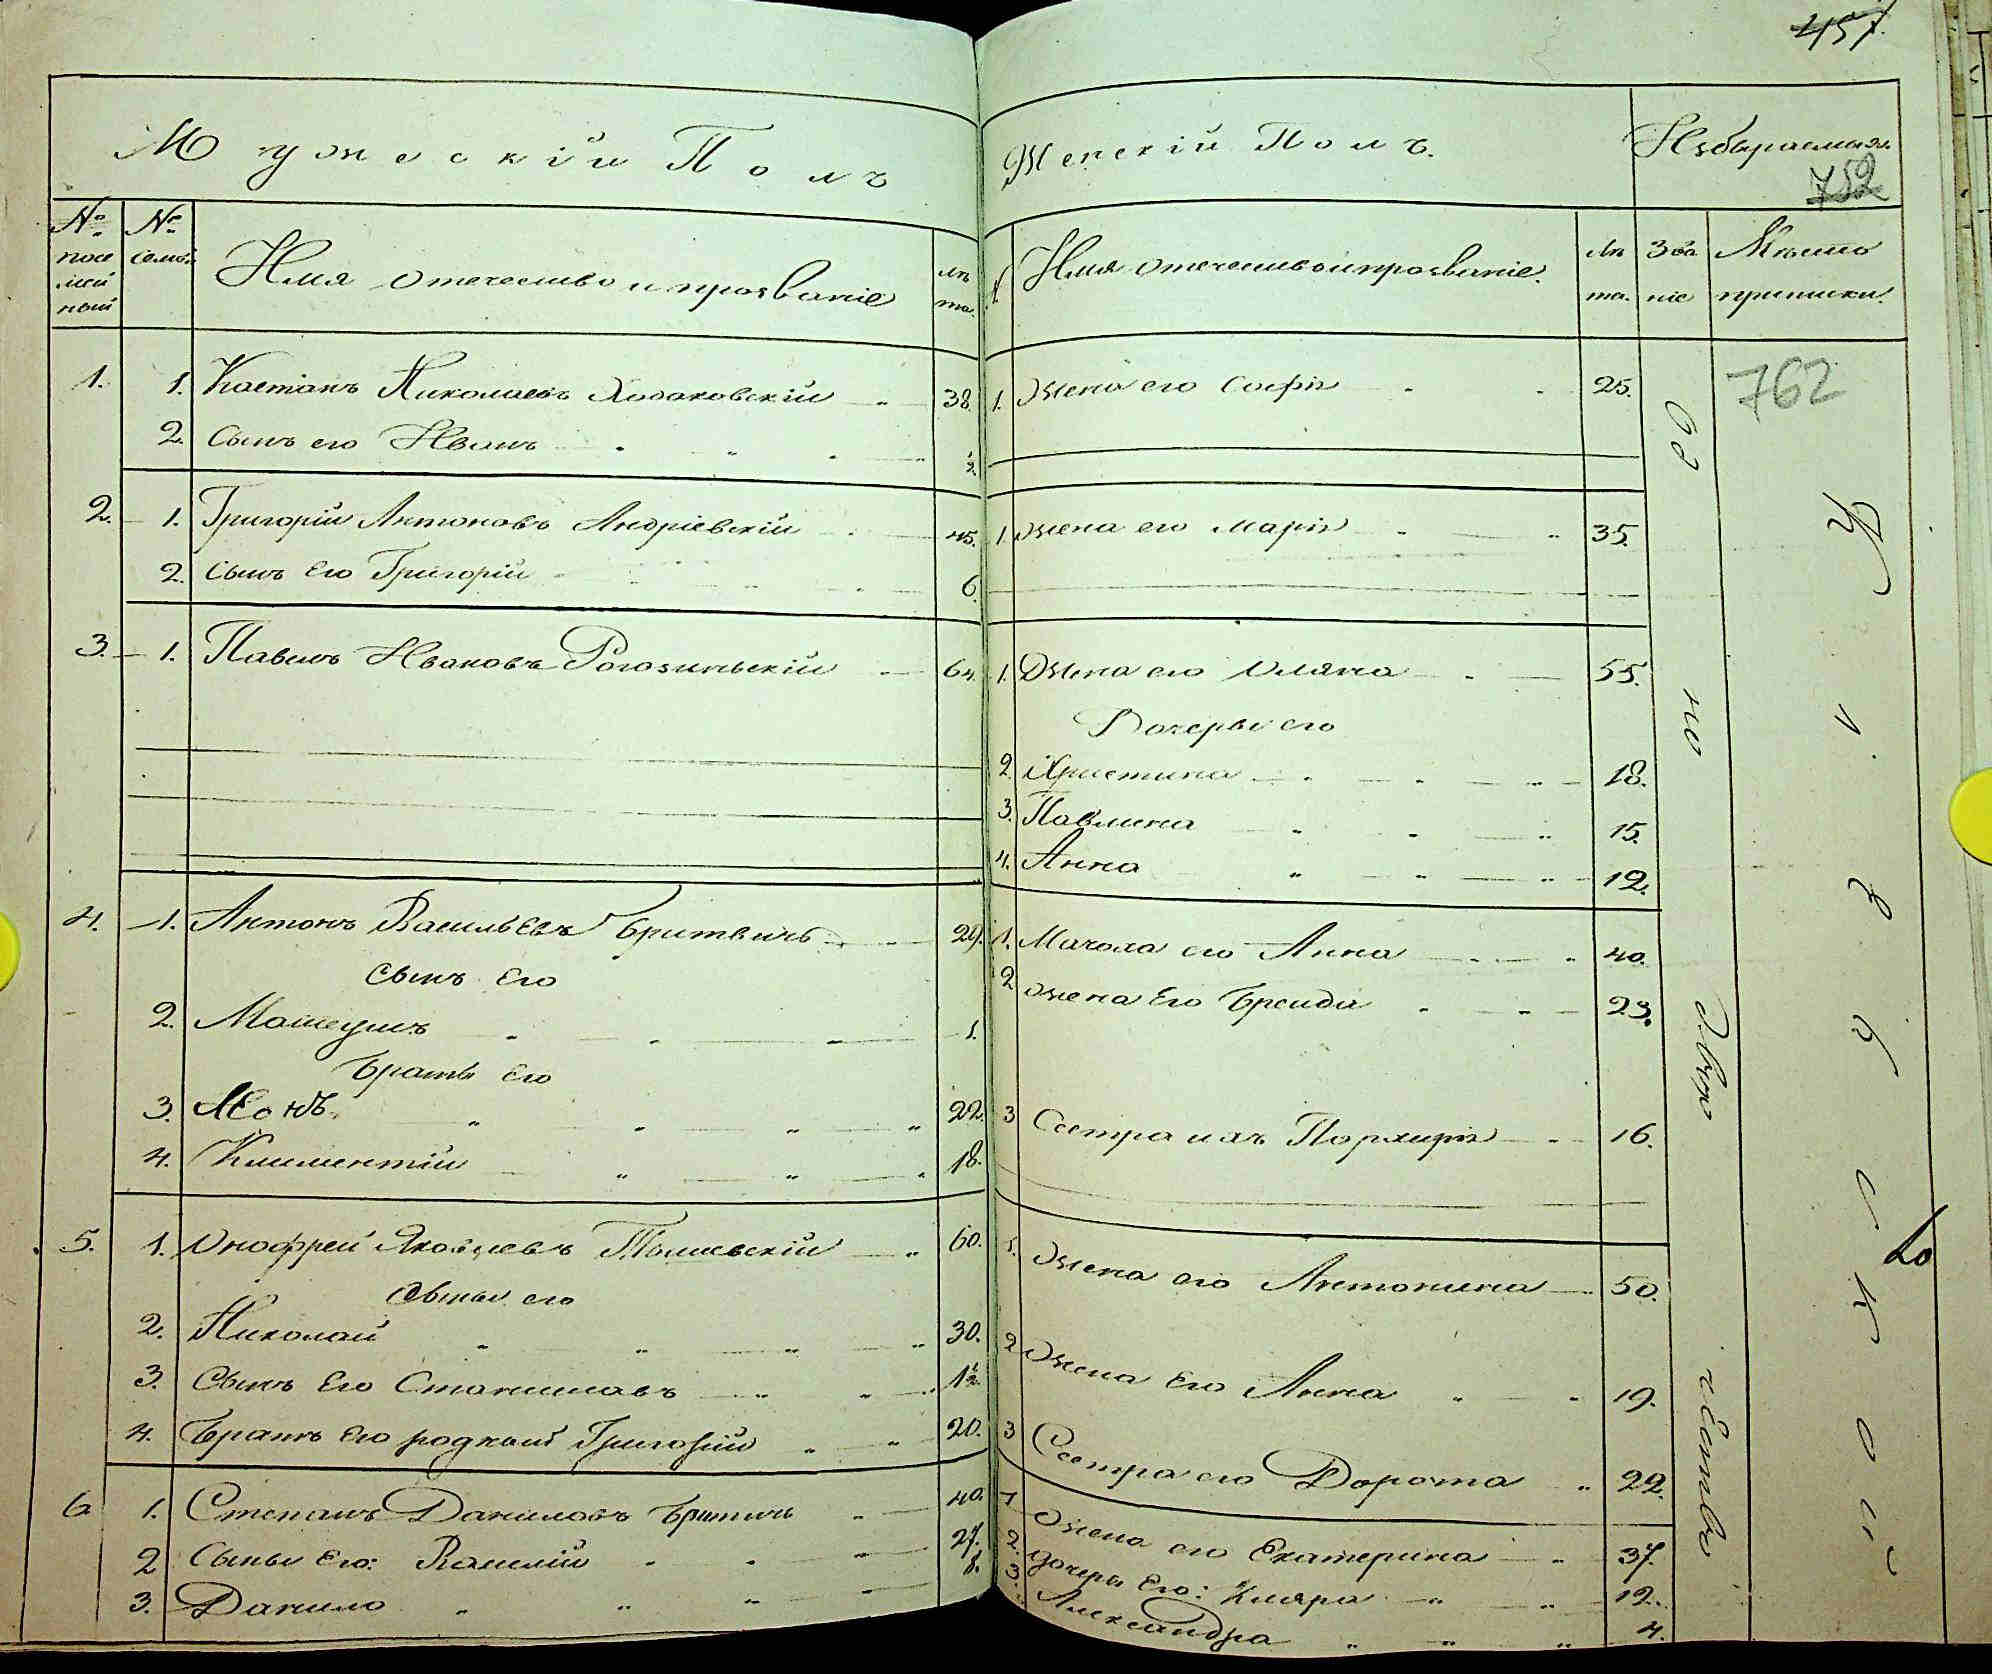 457.
Мужескій Полъ
№ посемейный
№ семьи
Имя отечество и прозваніе
лѣта.
1. 1. Каетанъ Николаевъ Ходаковскій 38.
2. Сынъ его Иванъ ½
2. 1. Григорій Антоновъ Андріевскій 45.
2. Сынъ Его Григорій 6.
3. 1. Павелъ Ивановъ Рогозиньскій 64.
4. 1. Антонъ Васильевъ Бритвичъ 29.
Сынъ Его
2. 1.
Братья Его
3. 22.
4. Климентій 18.
5. 1. Онофрей Яковлевъ 60.
Сыны его
2. Николай 30.
3. Сынъ Его Станиславъ 1½
4. Братъ Его родный Григорій 20.
6 1. Степанъ Даниловъ 40.
2 Сыны Его: Василій 27.
3. Данило 8.
Женскій Полъ.
752
Имя отечество и прозваніе.
Лѣта.
Званіе
Мѣсто приписки.
762
1. Жена его Софія 25.
1. Жена его Марія 35.
1. Жена его Оляна 55.
Дочеры его
2 Христина 18.
3. Павлина 15.
4. Анна 12.
1. Мачоха его Анна 40.
2 Жена Его 23.
3 Сестра ихъ 16.
1. Жена его Антонина 50.
2 Жена Его Анна 19.
3 Сестра его Дорота 22.
1 Жена его Екатерина 37.
2. дочеры Его: Кляра 12.
3. Александра 4.
Однодворчество